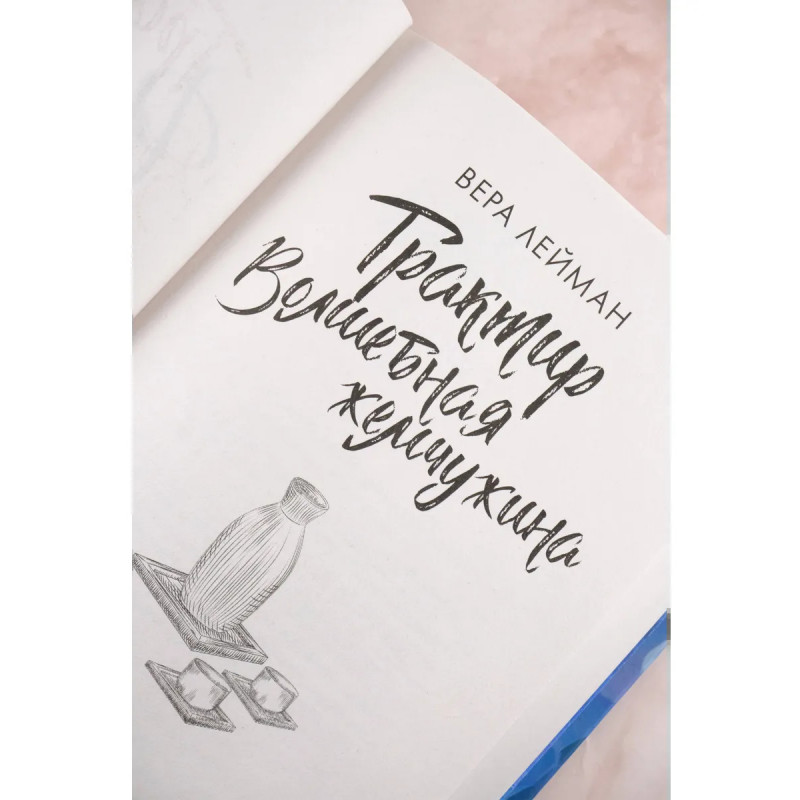 ВЕРА ЛЕЙМАН
Трактир
Волшебная
жемчужина